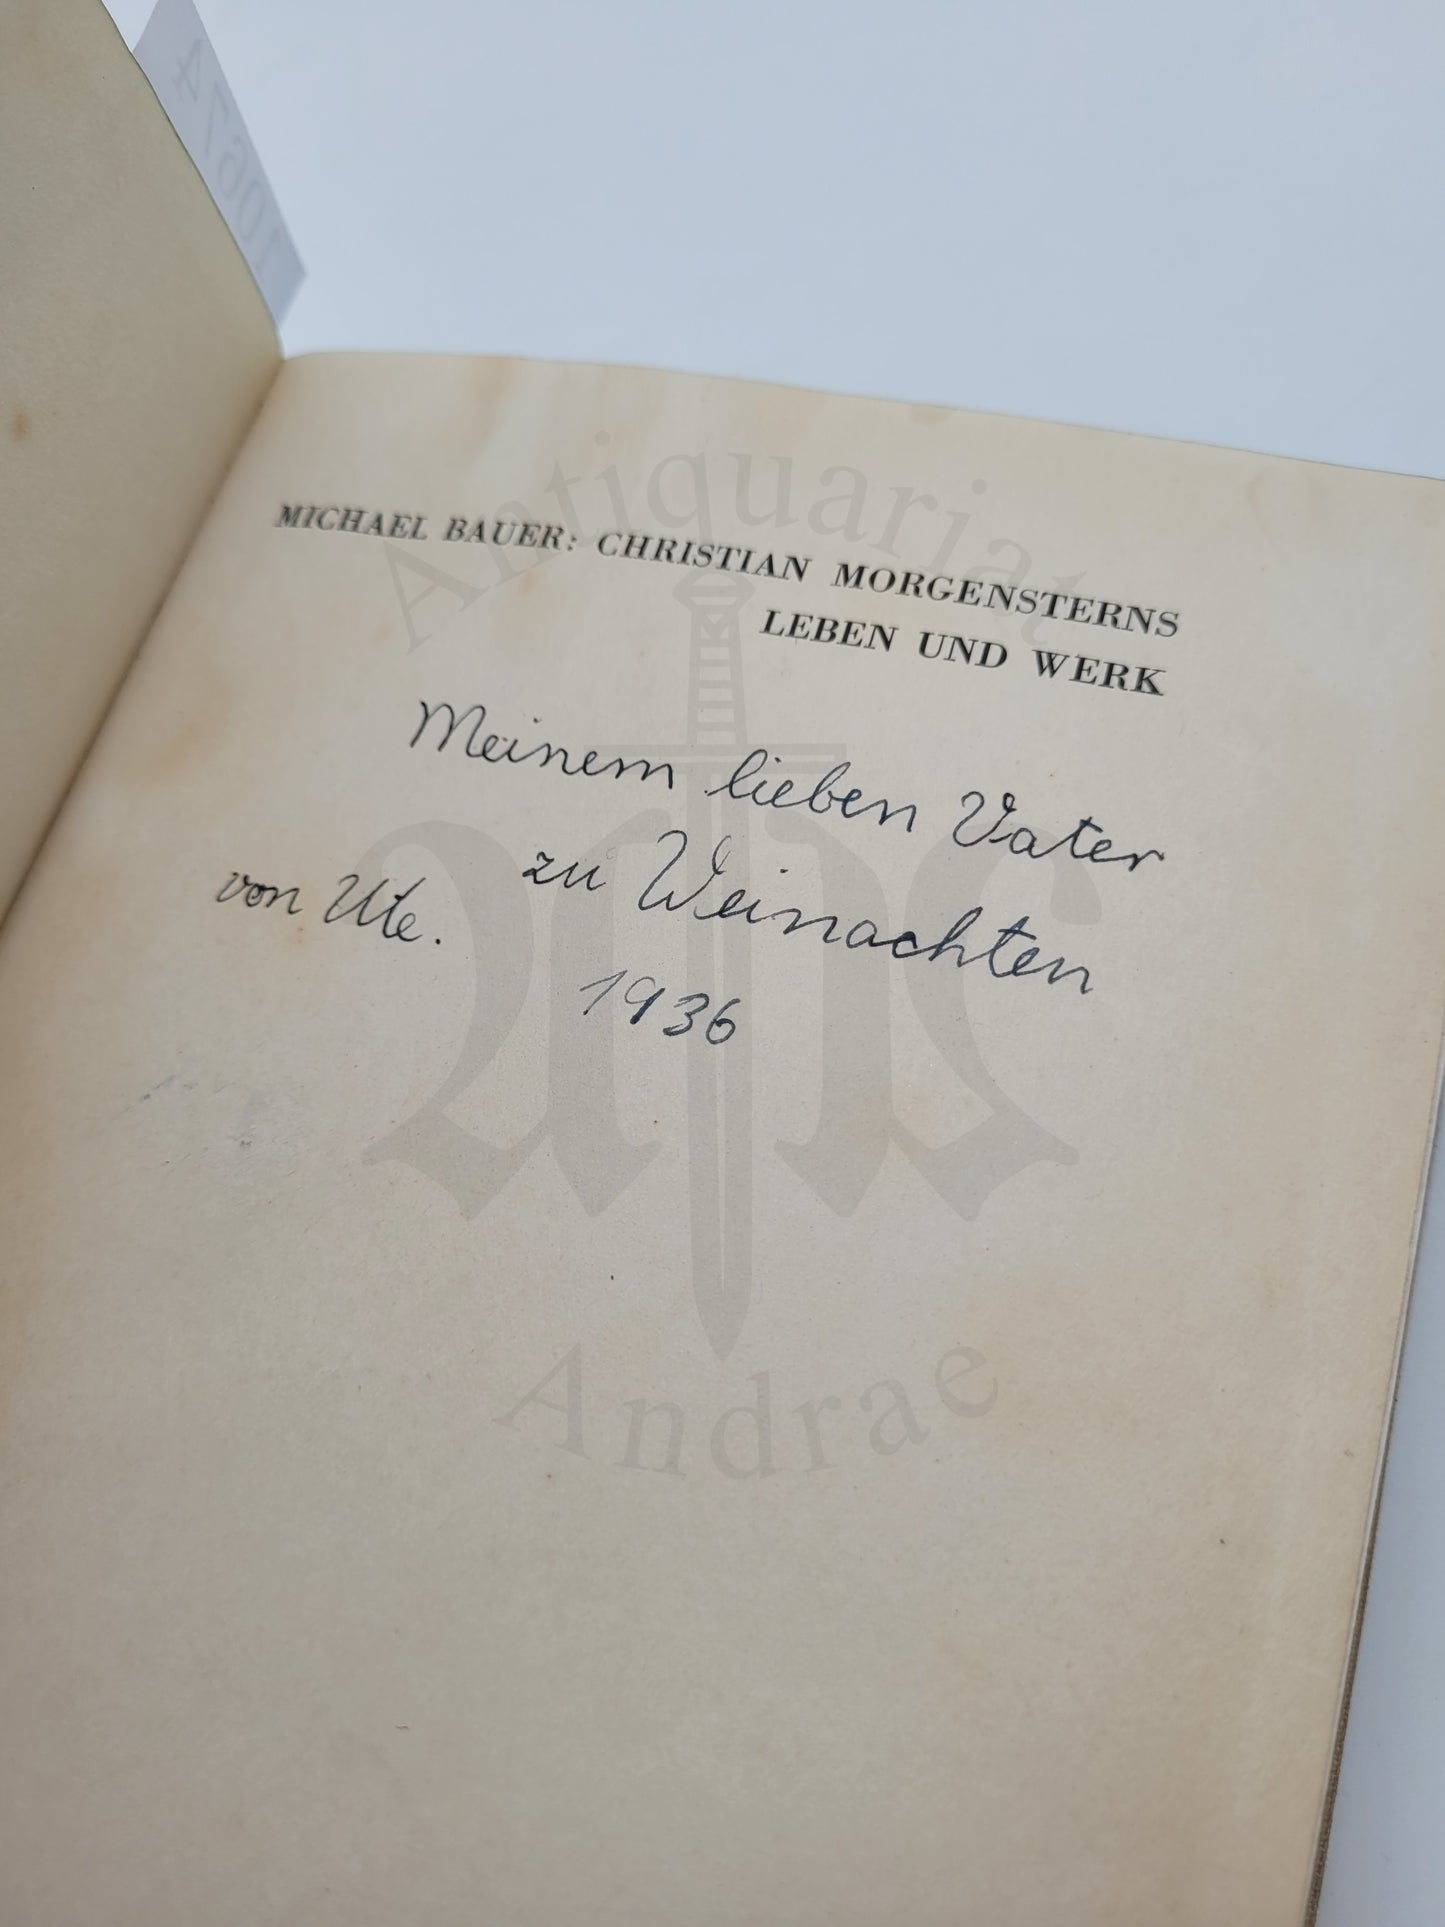 10674
MICHAEL BAUER: CHRISTIAN MORGENSTERNS
LEBEN UND WERK
Meinem lieben Vater
zu Weinachten
von Ute.
1936
Antiquariat
Andrae